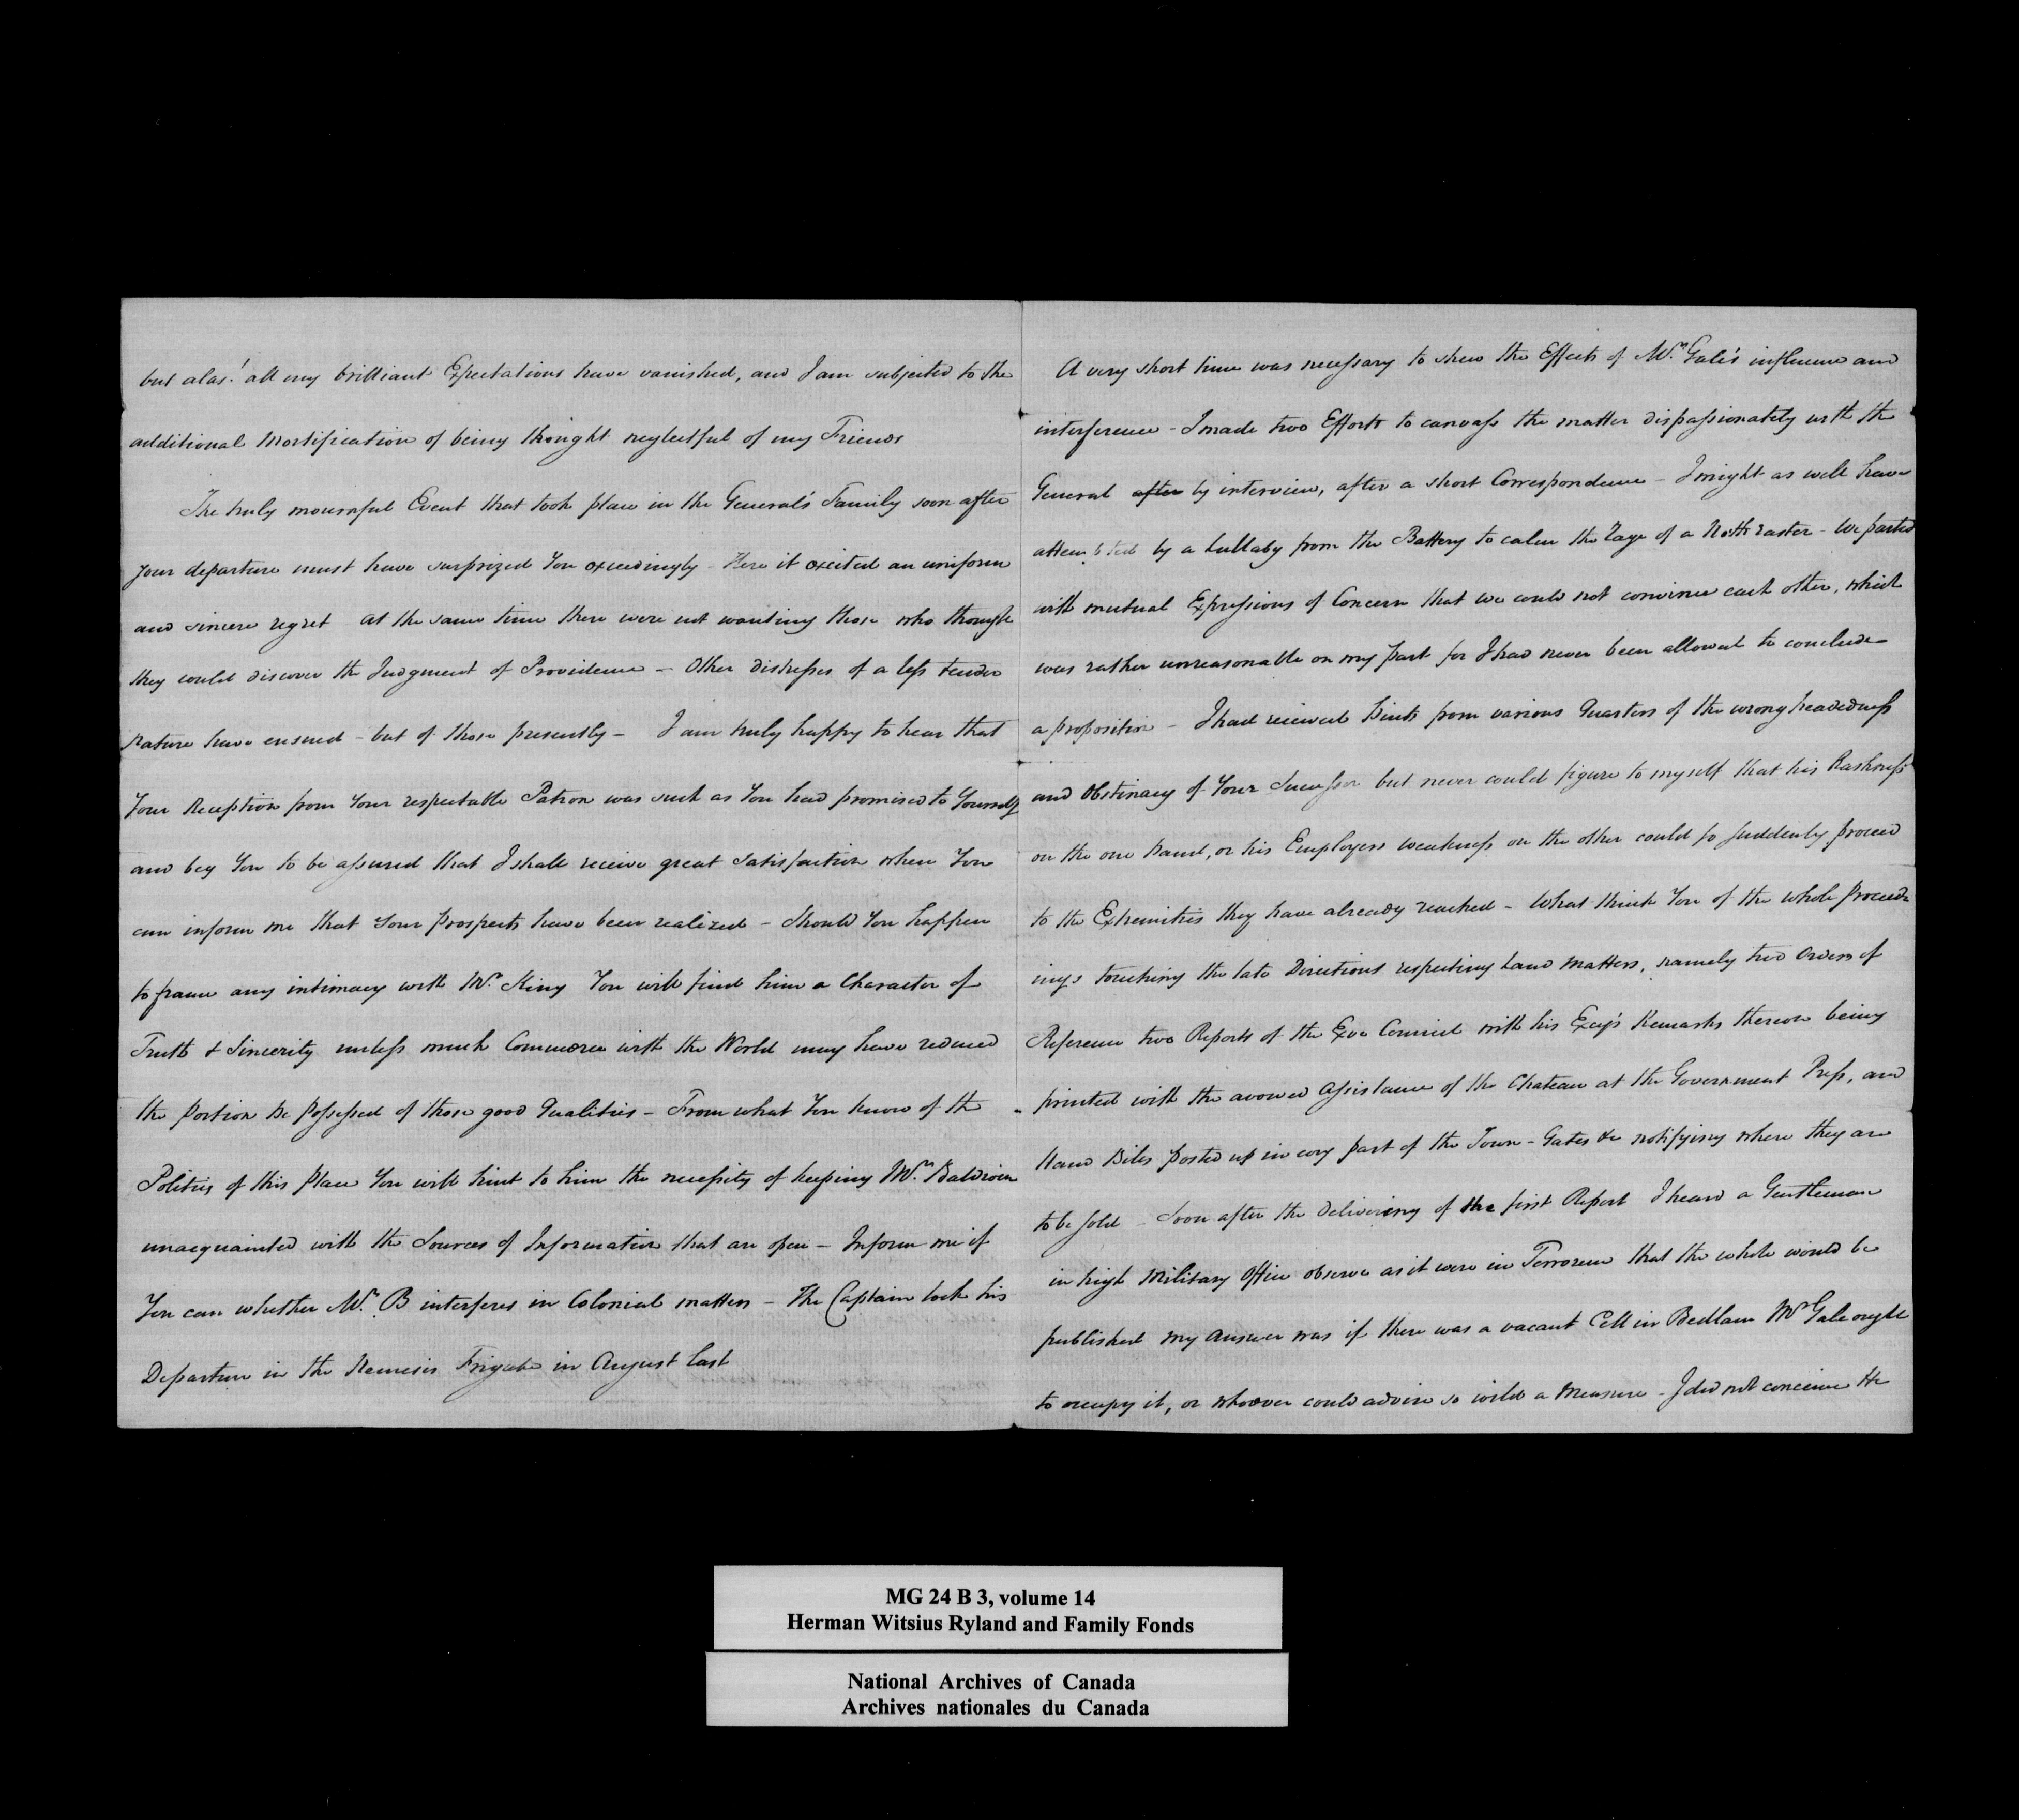 but alas! all my brilliant Expectations have vanished, and I am subjected to the
additional Mortification of being thought neglectful of my Friends
The truly mournful Event that took place in the General's Family soon after
your departure must have surprized You exceedingly - Here it excited an uniform
and sincere regret at the same time there were not wanting those who thought
they could discover the Judgment of Providence - Other distresses of a less tender
Nature have ensued - but of those presently - I am truly happy to hear that
Your Reception from Your respectable Patron was such as You had promised to Yourself
and beg You to be assured that I shall receive great Satisfaction when You
can inform me that Your prospects have been realized - Should You happen
to frame any intimacy with Mr. King You will find him a Character of
Truth & Sincerity unless much Commerce with the World may have reduced
the portion he possessed of those good Qualities - From what You know of the
Politics of this place You will hint to him the necessity of keeping Mr. Baldwin
unacquainted with the Sources of Information that are open - Inform me if
You can whether Mr. B interferes in Colonial matters - The Captain took his
Departure in the Nemesis Frigate in August last
A very short time was necessary to shew the Effects of Mr. Gale's influence and
interference - I made two Efforts to canvass the matter dispassionately with the
General after by interview, after a short Correspondence - I might as well have
attempted by a Lullaby from the Battery to calm the rage of a North easter - We parted
with mutual Expressions of Concern that we could not convince each other, which
was rather unreasonable on my part for I had never been allowed to conclude
a proposition - I had received hints from various Quarters of the wrongheadedness
and Obstinacy of Your Successor but never could figure to myself that his Rashness
on the one hand, or his Employers weakness on the other could so suddenly proceed
to the Extremities they have already reached - What think You of the whole proceed-
ings touching the late Directions respecting Land Matters, namely two Orders of
Reference two Reports of the Exve Council with his Excy's Remarks thereon being
printed with the avowed assistance of the Chateau at the Government Press, and
Hand Bills posted up in evry part of the Town - Gates &c notifying where they are
to be sold - Soon after the delivering of the first Report I heard a Gentleman
in high Military Office observe as it were in Terrorem that the whole would be
published my answer was if there was a vacant Cell in Bedlam Mr Gale ought
to occupy it, or whoever could advise so wild a Measure - I did not conceive He
MG 24 B 3, volume 14
Herman Witsius Ryland and Family Fonds
National Archives of Canada
Archives nationales du Canada